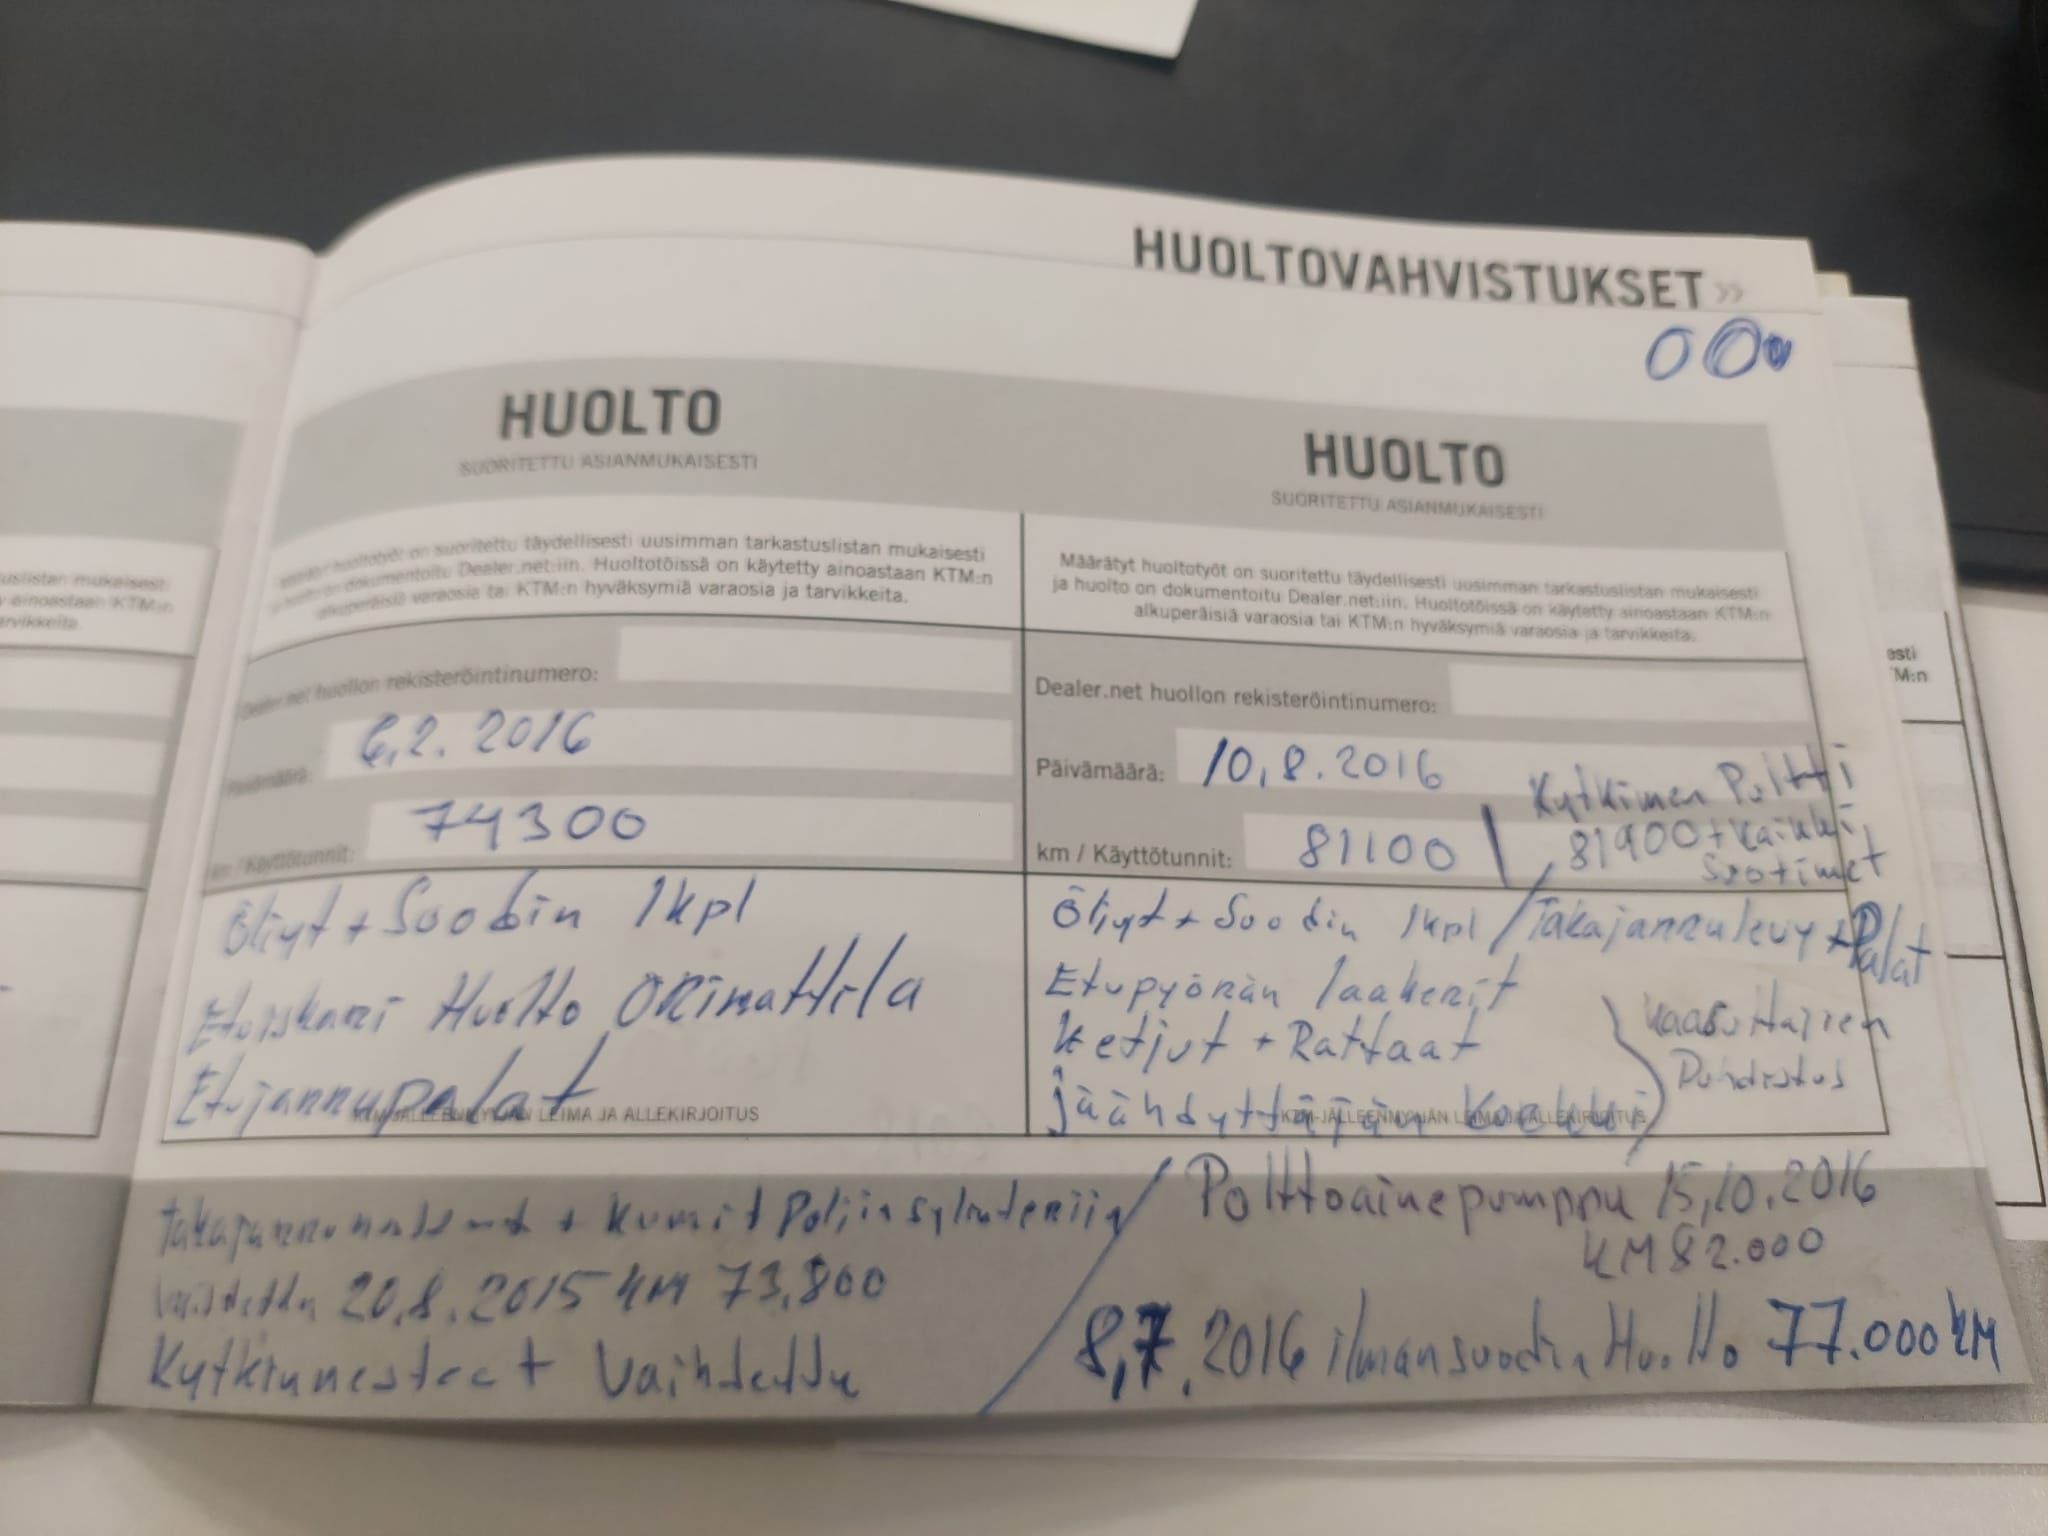 HUOLTOVAHVISTUKSET »
HUOLTO
SUORITETTU ASIANMUKAISESTI
huoltotyöt on suoritettu täydellisesti uusimman tarkastuslistan mukaisesti
ja huolto on dokumentoitu Dealer.net:iin. Huoltotöissä on käytetty ainoastaan KTM:n
alkuperäisiä varaosia tai KTM:n hyväksymiä varaosia ja tarvikkeita.
Dealer.net huollon rekisteröintinumero:
Päivämäärä: 6,2. 2016
km / Käyttötunnit: 74300
Öliyt + Suodin 1kpl
Etuiskari Huolto Orimattila
Etujarrupalat
KTM-JÄLLEENMYYJÄN LEIMA JA ALLEKIRJOITUS
+ Kumit Poljinsylinteriin
20.8.2015 KM 73.800
Kytkinnesteet Vaihdettu
HUOLTO
SUORITETTU ASIANMUKAISESTI
Määrätyt huoltotyöt on suoritettu täydellisesti uusimman tarkastuslistan mukaisesti
ja huolto on dokumentoitu Dealer.net:iin. Huoltotöissä on käytetty ainoastaan KTM:n
alkuperäisiä varaosia tai KTM:n hyväksymiä varaosia ja tarvikkeita.
Dealer.net huollon rekisteröintinumero:
Päivämäärä: 10,8.2016
km / Käyttötunnit: 81100
Kytkimen Pultti
81900 + Kaikki
Suotimet
Öliyt + Suodin 1kpl / Takajarrulevy + Palat
Etupyörän laakerit
Ketjut + Rattaat
Jäähdyttäjän Korkki
Kaasuttajien
Puhdistus
KTM-JÄLLEENMYYJÄN LEIMA JA ALLEKIRJOITUS
Polttoainepumppu 15,10.2016
KM 82.000
8,7.2016 ilmansuodin Huolto 77.000 KM
tuslistan mukaisesti
y ainoastaan KTM:n
arvikkeita
esti
M:n